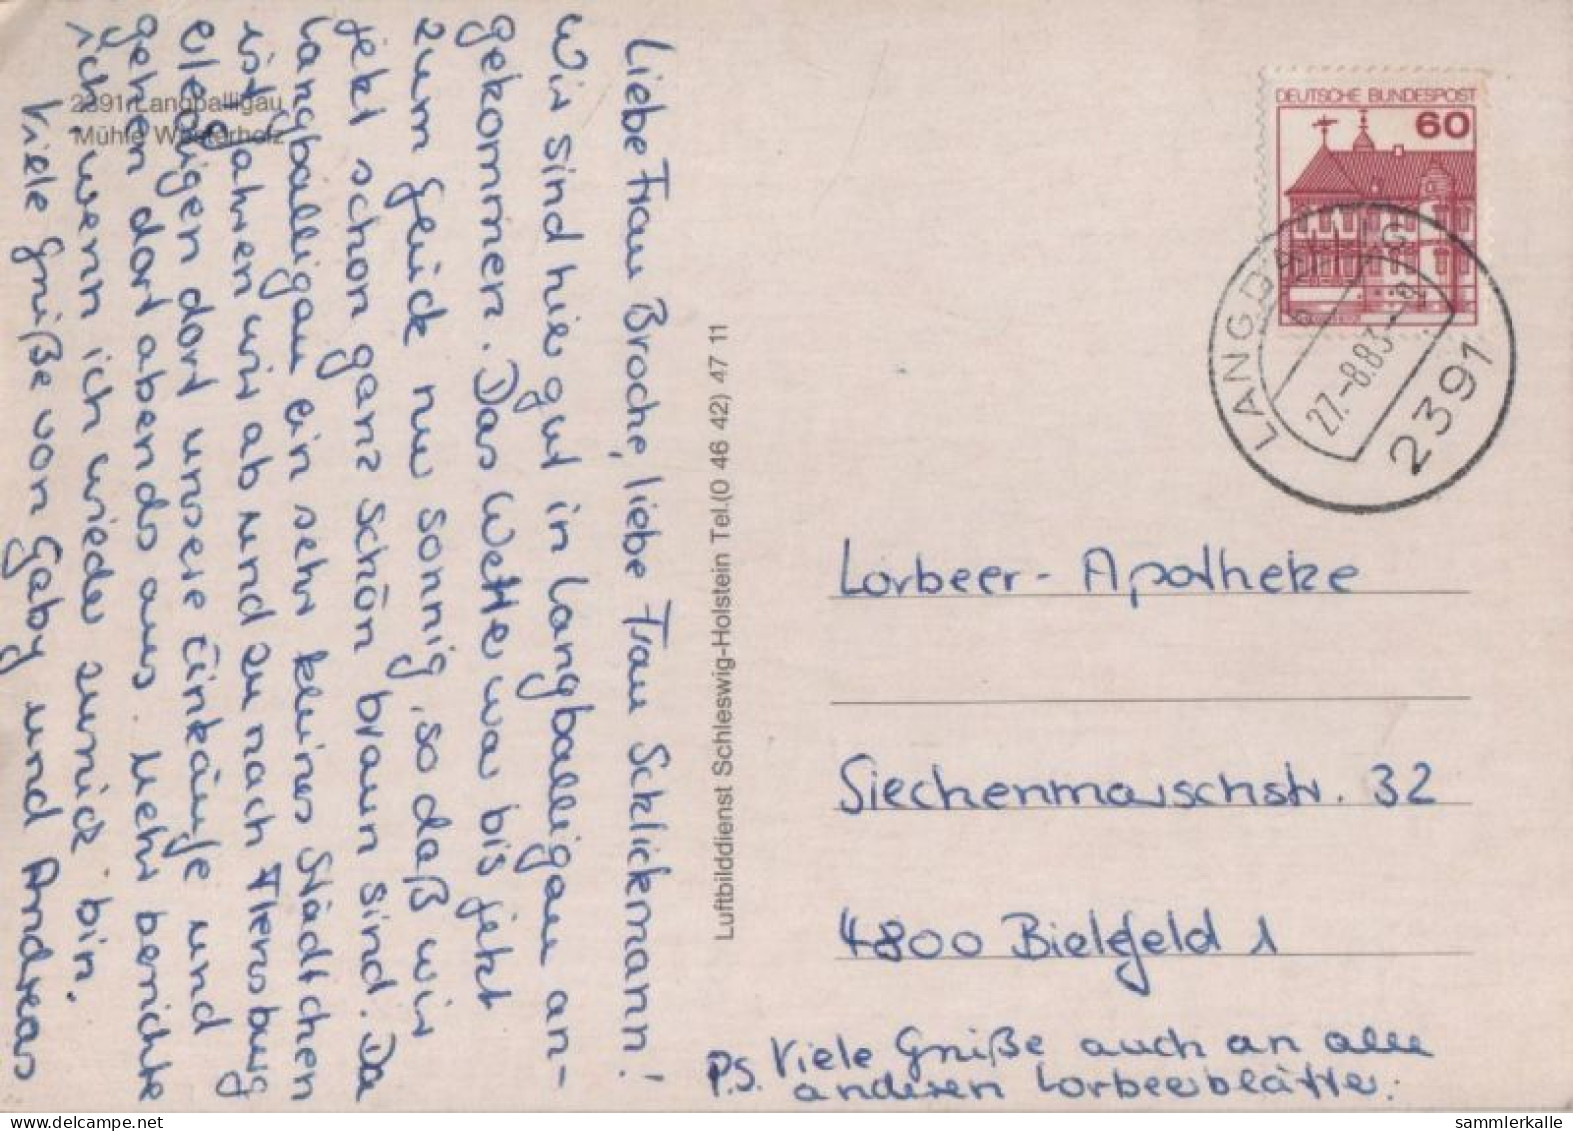 Liebe Frau Broche, liebe Frau Schlickmann!
Wir sind hier gut in Langballigau an-
gekommen. Das Wetter war bis jetzt
zum Glück nur sonnig, so daß wir
jetzt schon ganz schön braun sind. Da
Langballigau ein sehr kleines Städtchen
ist, fahren wir ab und zu nach Flensburg
erledigen dort unsere Einkäufe und
gehen dort abends aus. Mehr berichte
ich wenn ich wieder zurück bin.
Viele Grüße von Gaby und Andreas
2391 Langballigau
Mühle Westerholz
Luftbilddienst Schleswig-Holstein Tel.(0 46 42) 47 11
DEUTSCHE BUNDESPOST
60
LANGBALLIG
27.-8.83
2391
Lorbeer-Apotheke
Siechenmarschstr. 32
4800 Bielefeld 1
P.S. Viele Grüße auch an alle
anderen Lorbeerblätter.
sammlerkalle